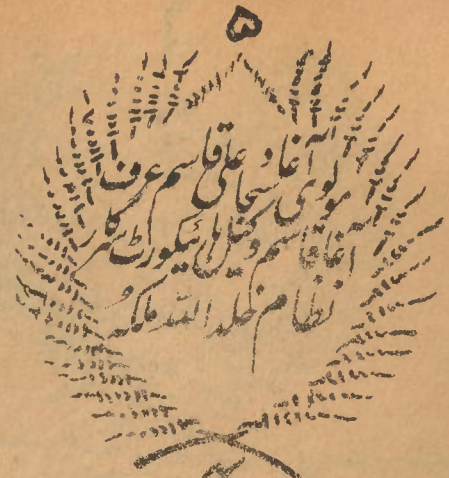 مولوی آغا سجاد علی قاسم عرف
آغا قاسم وکیل ہائیکورٹ سرکار
نظام خلد اللہ ملکہ